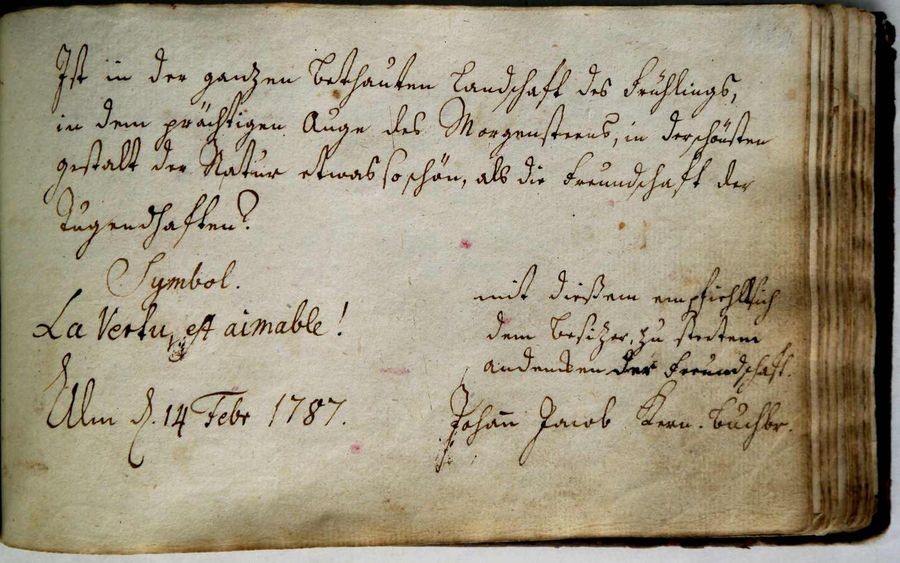 Ist in der ganzen bethauten Landschaft des Frühlings,
in dem prächtigen Auge des Morgensterns, in der schönsten
gestalt der Natur etwas so schön, als die Freundschaft der
Tugendhaften?
Symbol.
La Vertu, est aimable!
Ulm d. 14 Febr 1787.
mit dießem empfiehlt sich
dem besitzer, zu stertem
andencken der Freundschaft.
Johan̅ Jacob Kern. buchbr.